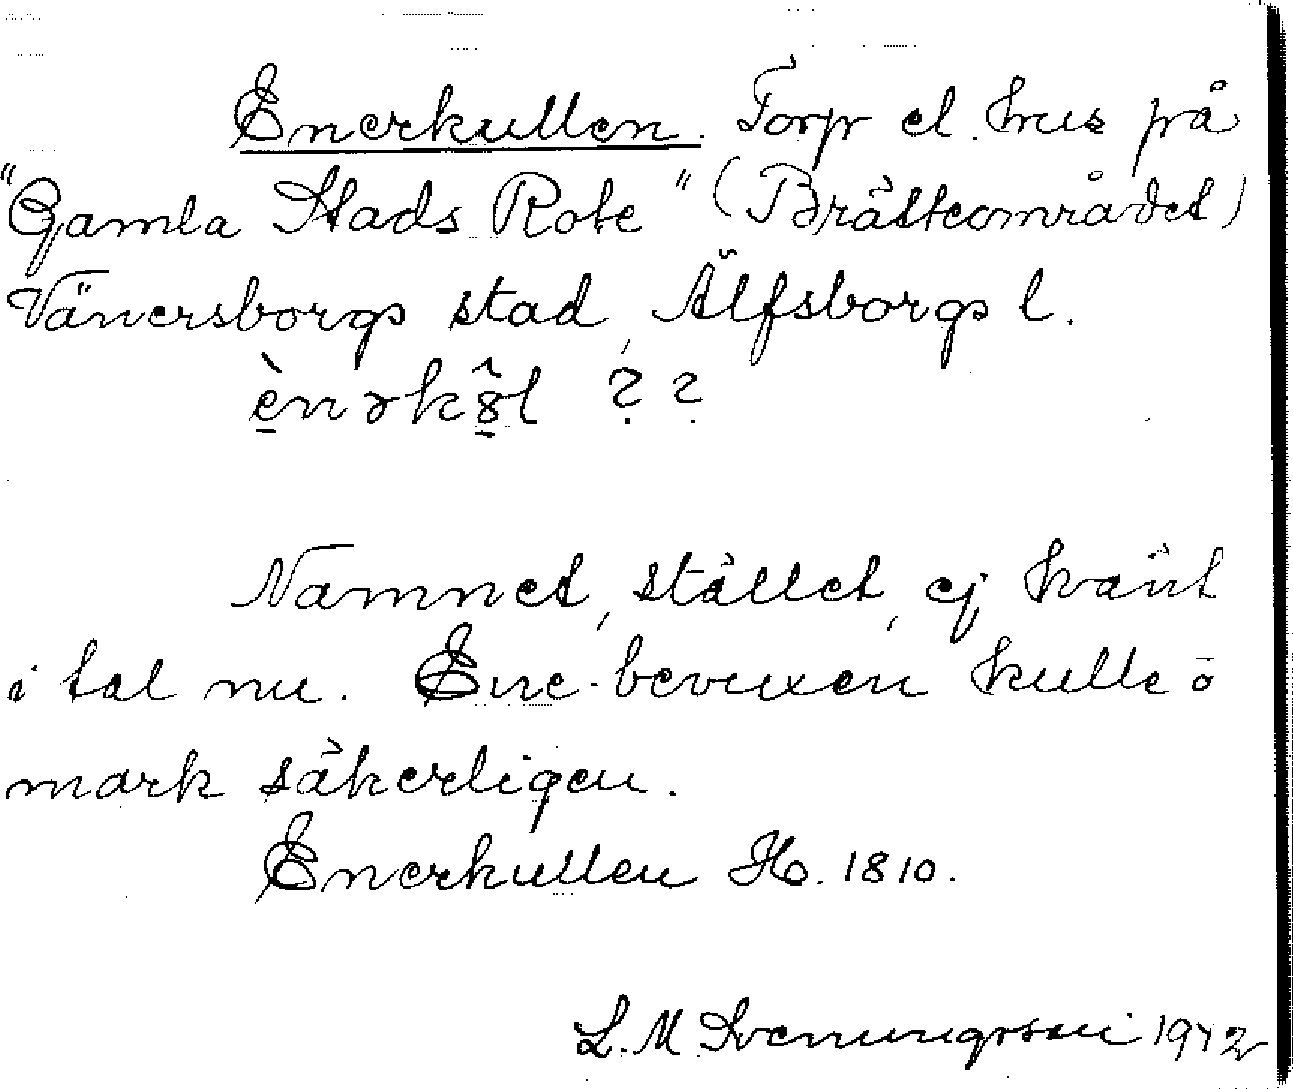 Enerkullen. Torp el. hus på
"Gamla Stads Rote" (Brätteområdet)
Vänersborgs stad, Älfsborgs l.
è̱nərk8̱̂l ? ?
Namnet, stället, ej känt
i tal nu. Ene-bevuxen kulle o
mark säkerligen.
Enerkullen Hb. 1810.
L. M. Svenungsson 1942